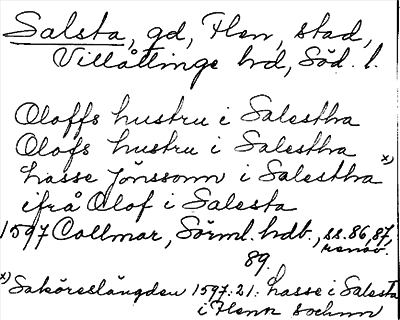 Salsta, gd, Flen, stad,
Villåttinge hd, Söd. l.
Oloffs hustru i Salestha
Olofs hustru i Salestha
Lasse Jönssonn i Salestha x)
ifrå Olof i Salesta
1597 Collmar, Sörml. hdb., ss. 86, 87,
89. renov.
x) Saköreslängden 1597:21: Lasse i Salesta
i Flenn sochnn